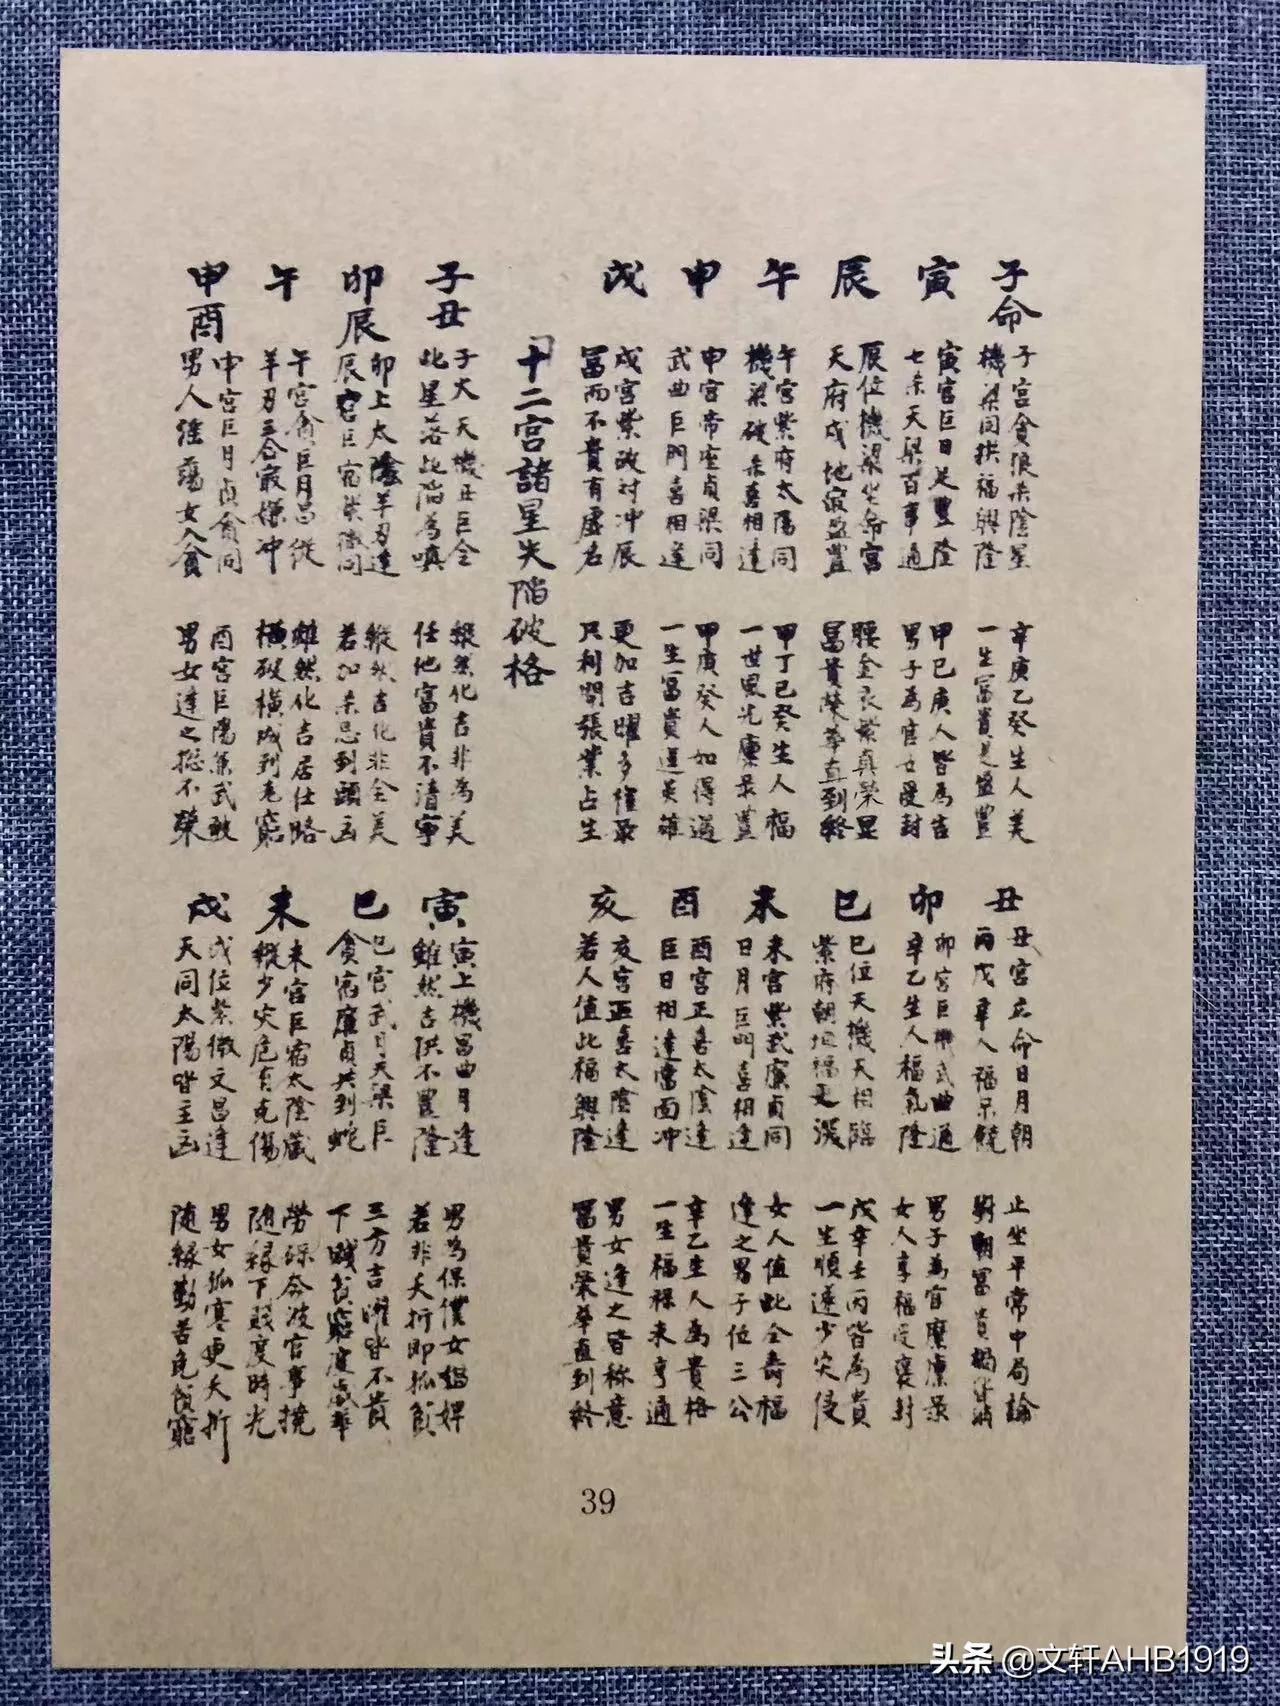 子命
子宮貪狼杀陰星
機梁同拱福興隆
辛庚乙癸生人美
一生富貴足盈豐
丑
丑宮立命日月朝
丙戊辛人福呆饒
止坐平常中局論
朝富貴
寅
寅宮巨日足豐隆
七杀天梁百事通
甲巳庚人皆為吉
男子為官女受封
卯
卯宮巨機武曲通
辛乙生人福氣隆
男子為官廉
女人享福受褒封
辰
辰位機梁坐命宮
天府戌地最盈豐
腰金衣紫真榮显
富貴榮華直到終
巳
巳位天機天相臨
紫府朝垣福更深
戊辛壬丙皆為貴
一生順遂少灾侵
午
午宮紫府太陽同
機梁破杀喜相逢
甲丁己癸生人福
一世風光廩录豐
未
未宮紫武廉貞同
日月巨門喜相逢
女人值此全壽福
逢之男子位三公
申
申宮帝座貞梁同
武曲巨門喜相逢
甲庚癸人如得遇
一生富貴逞英雄
酉
酉宮正喜太陰逢
巨日相逢當面冲
辛乙生人為貴格
一生福禄末亨通
戌
戌宮紫破对冲辰
富而不貴有虚名
更加吉曜多催录
只利開張業占生
亥
亥宮正喜太陰逢
若人值此福興隆
男女逢之皆称意
富貴榮華直到終
十二宮諸星失陷破格
子丑
子犬天機丑巨全
此星落此陷為嗔
縱然化吉非為美
任他富貴不清寧
寅
寅上機昌曲月逢
雖然吉拱不豐隆
男為保僕女娼婢
若非夭折即孤貧
卯辰
卯上太陰羊刃逢
辰宮巨宿紫微同
縱然吉化非全美
若加杀忌到頭凶
巳
巳宮武月天梁巨
貪宿廉貞共到蛇
三方吉曜皆不貴
下賤貧窮度歲華
午
午宮貪巨月昌從
羊刃三合最嫌冲
雖然化吉居仕路
橫破橫成到老窮
未
未宮巨宿太陰藏
縱少灾危有克傷
勞碌奔波官事撓
随緣下賤度時光
申酉
申宮巨月貞貪同
男人淫蕩女人貪
酉宮巨陽
男女逢之總不榮
戌
戌位紫微文昌逢
天同太陽皆主凶
男女孤寒更夭折
随緣勤苦免貧窮
39
头条 @文轩AHB1919